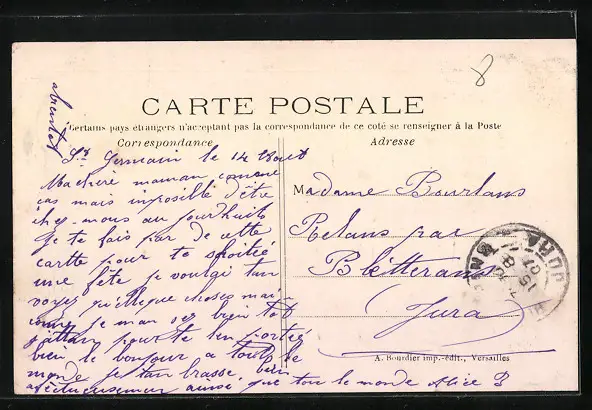 8
CARTE POSTALE
Certains pays étrangers n'acceptant pas la correspondance de ce coté se renseigner à la Poste
Correspondance
Adresse
abientot
St Germain le 14 Aout
Machère maman comme
cas mais imposible d'être
chez-nous au jourd'huits
je te fais par de cette
cartte pour te shoitiée
une fête je voulgi tan
voyez quelleque choses mai
comme je man vez bien tôt
j'attan pour te ten portée
bien le bonjour a touts le
monde je tan brasse bien
afectueusemen aussi que tou le monde Alice B
Madame Bourlans
Relans par
Blétterans
Jura
JURA
A. Bourdier imp.-édit., Versailles